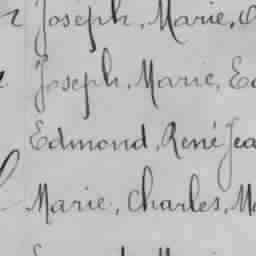 Joseph, Marie,
Joseph, Marie,
Edmond, René Jea
Marie, Charles,